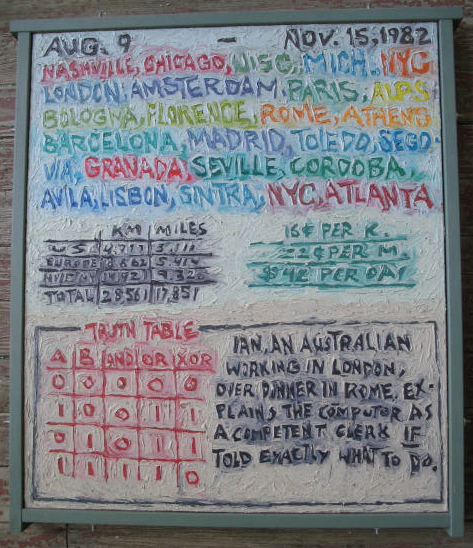 AUG. 9 — NOV. 15, 1982
NASHVILLE, CHICAGO, WISC., MICH., NYC
LONDON, AMSTERDAM, PARIS, ALPS
BOLOGNA, FLORENCE, ROME, ATHENS
BARCELONA, MADRID, TOLEDO, SEGO-
VIA, GRANADA, SEVILLE, CORDOBA,
AVILA, LISBON, SINTRA, NYC, ATLANTA
KM MILES
EUROPE 5,414
TOTAL 28,561 17,851
16¢ PER K.
22¢ PER M.
$42 PER DAY
TRUTH TABLE
A B AND OR XOR
0 0 0 0 0
1 0 0 1 1
0 1 0 1 1
1 1 1 1 0
IAN, AN AUSTRALIAN
WORKING IN LONDON,
OVER DINNER IN ROME, EX-
PLAINS THE COMPUTOR AS
A COMPETENT CLERK IF
TOLD EXACTLY WHAT TO DO.